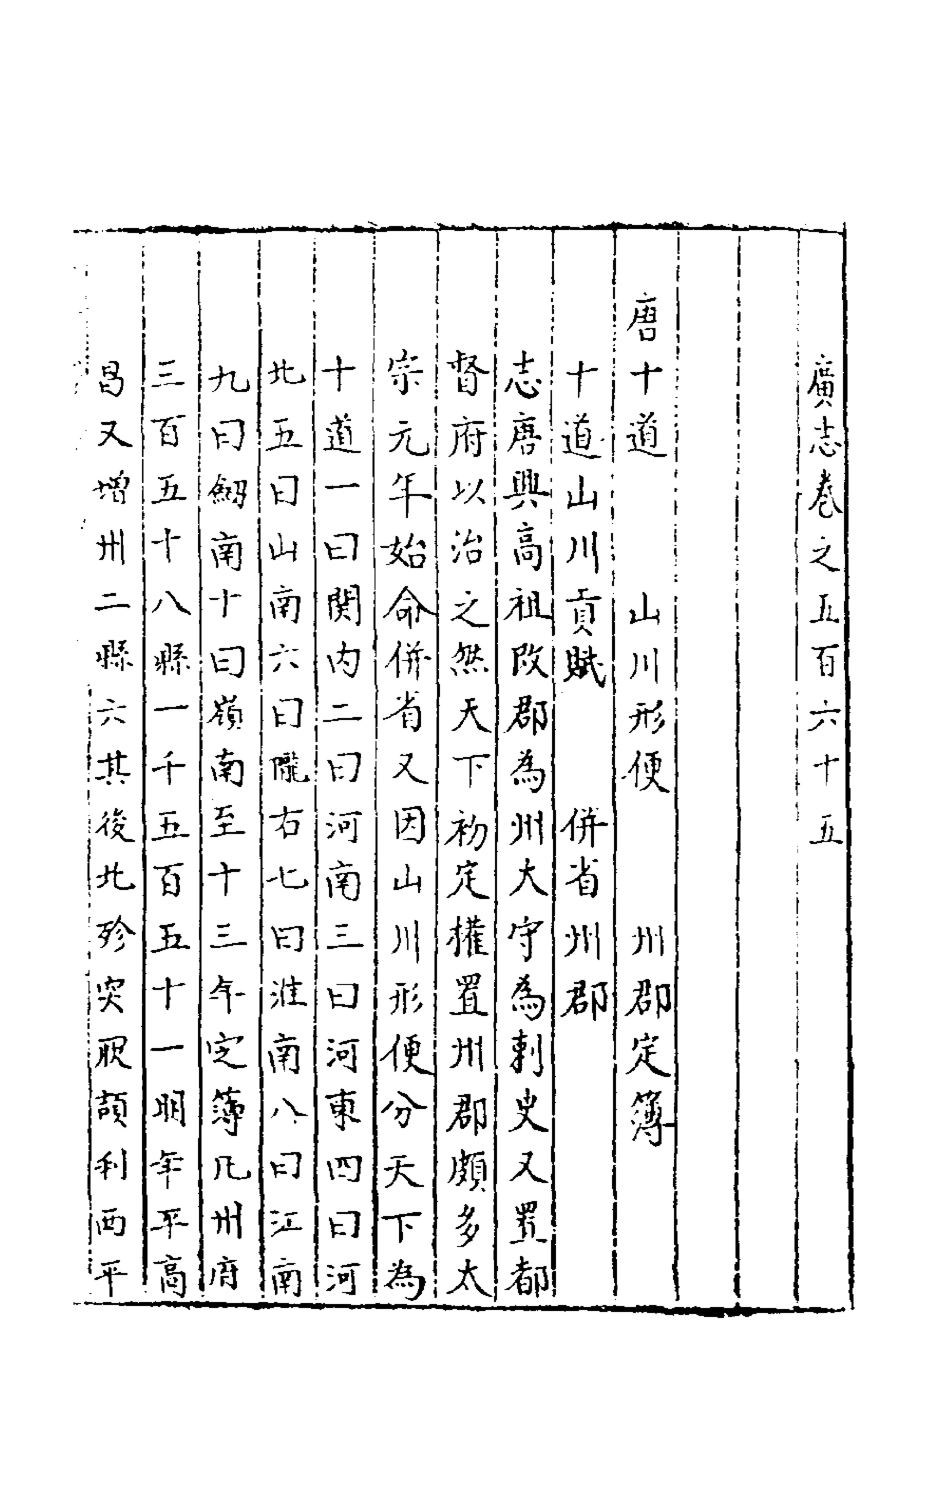 廣志卷之五百六十五
唐十道　山川形便　州郡定簿
十道山川貢賦　併省州郡
志唐興高祖改郡為州大守為刺史又置都
督府以治之然天下初定權置州郡頗多太
宗元年始命併省又因山川形便分天下為
十道一曰関内二曰河南三曰河東四曰河
北五曰山南六曰隴右七曰淮南八曰江南
九曰劒南十曰嶺南至十三年定簿凡州府
三百五十八縣一千五百五十一明年平高
昌又增州二縣六其後北殄突厥頡利西平